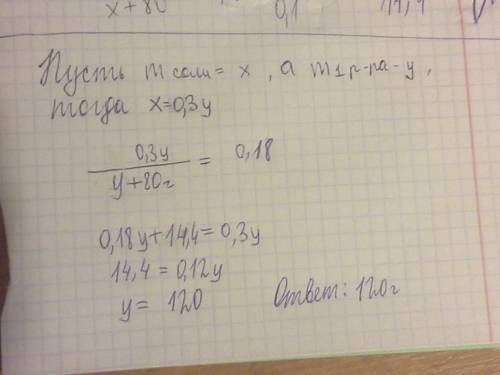 x+80 0,1
Пусть m соли = x , а m 1 р-ра - y ,
тогда x=0,3y
0,3y
y+80г = 0,18
0,18y+14,4=0,3y
14,4 = 0,12y
y= 120 Ответ: 120г